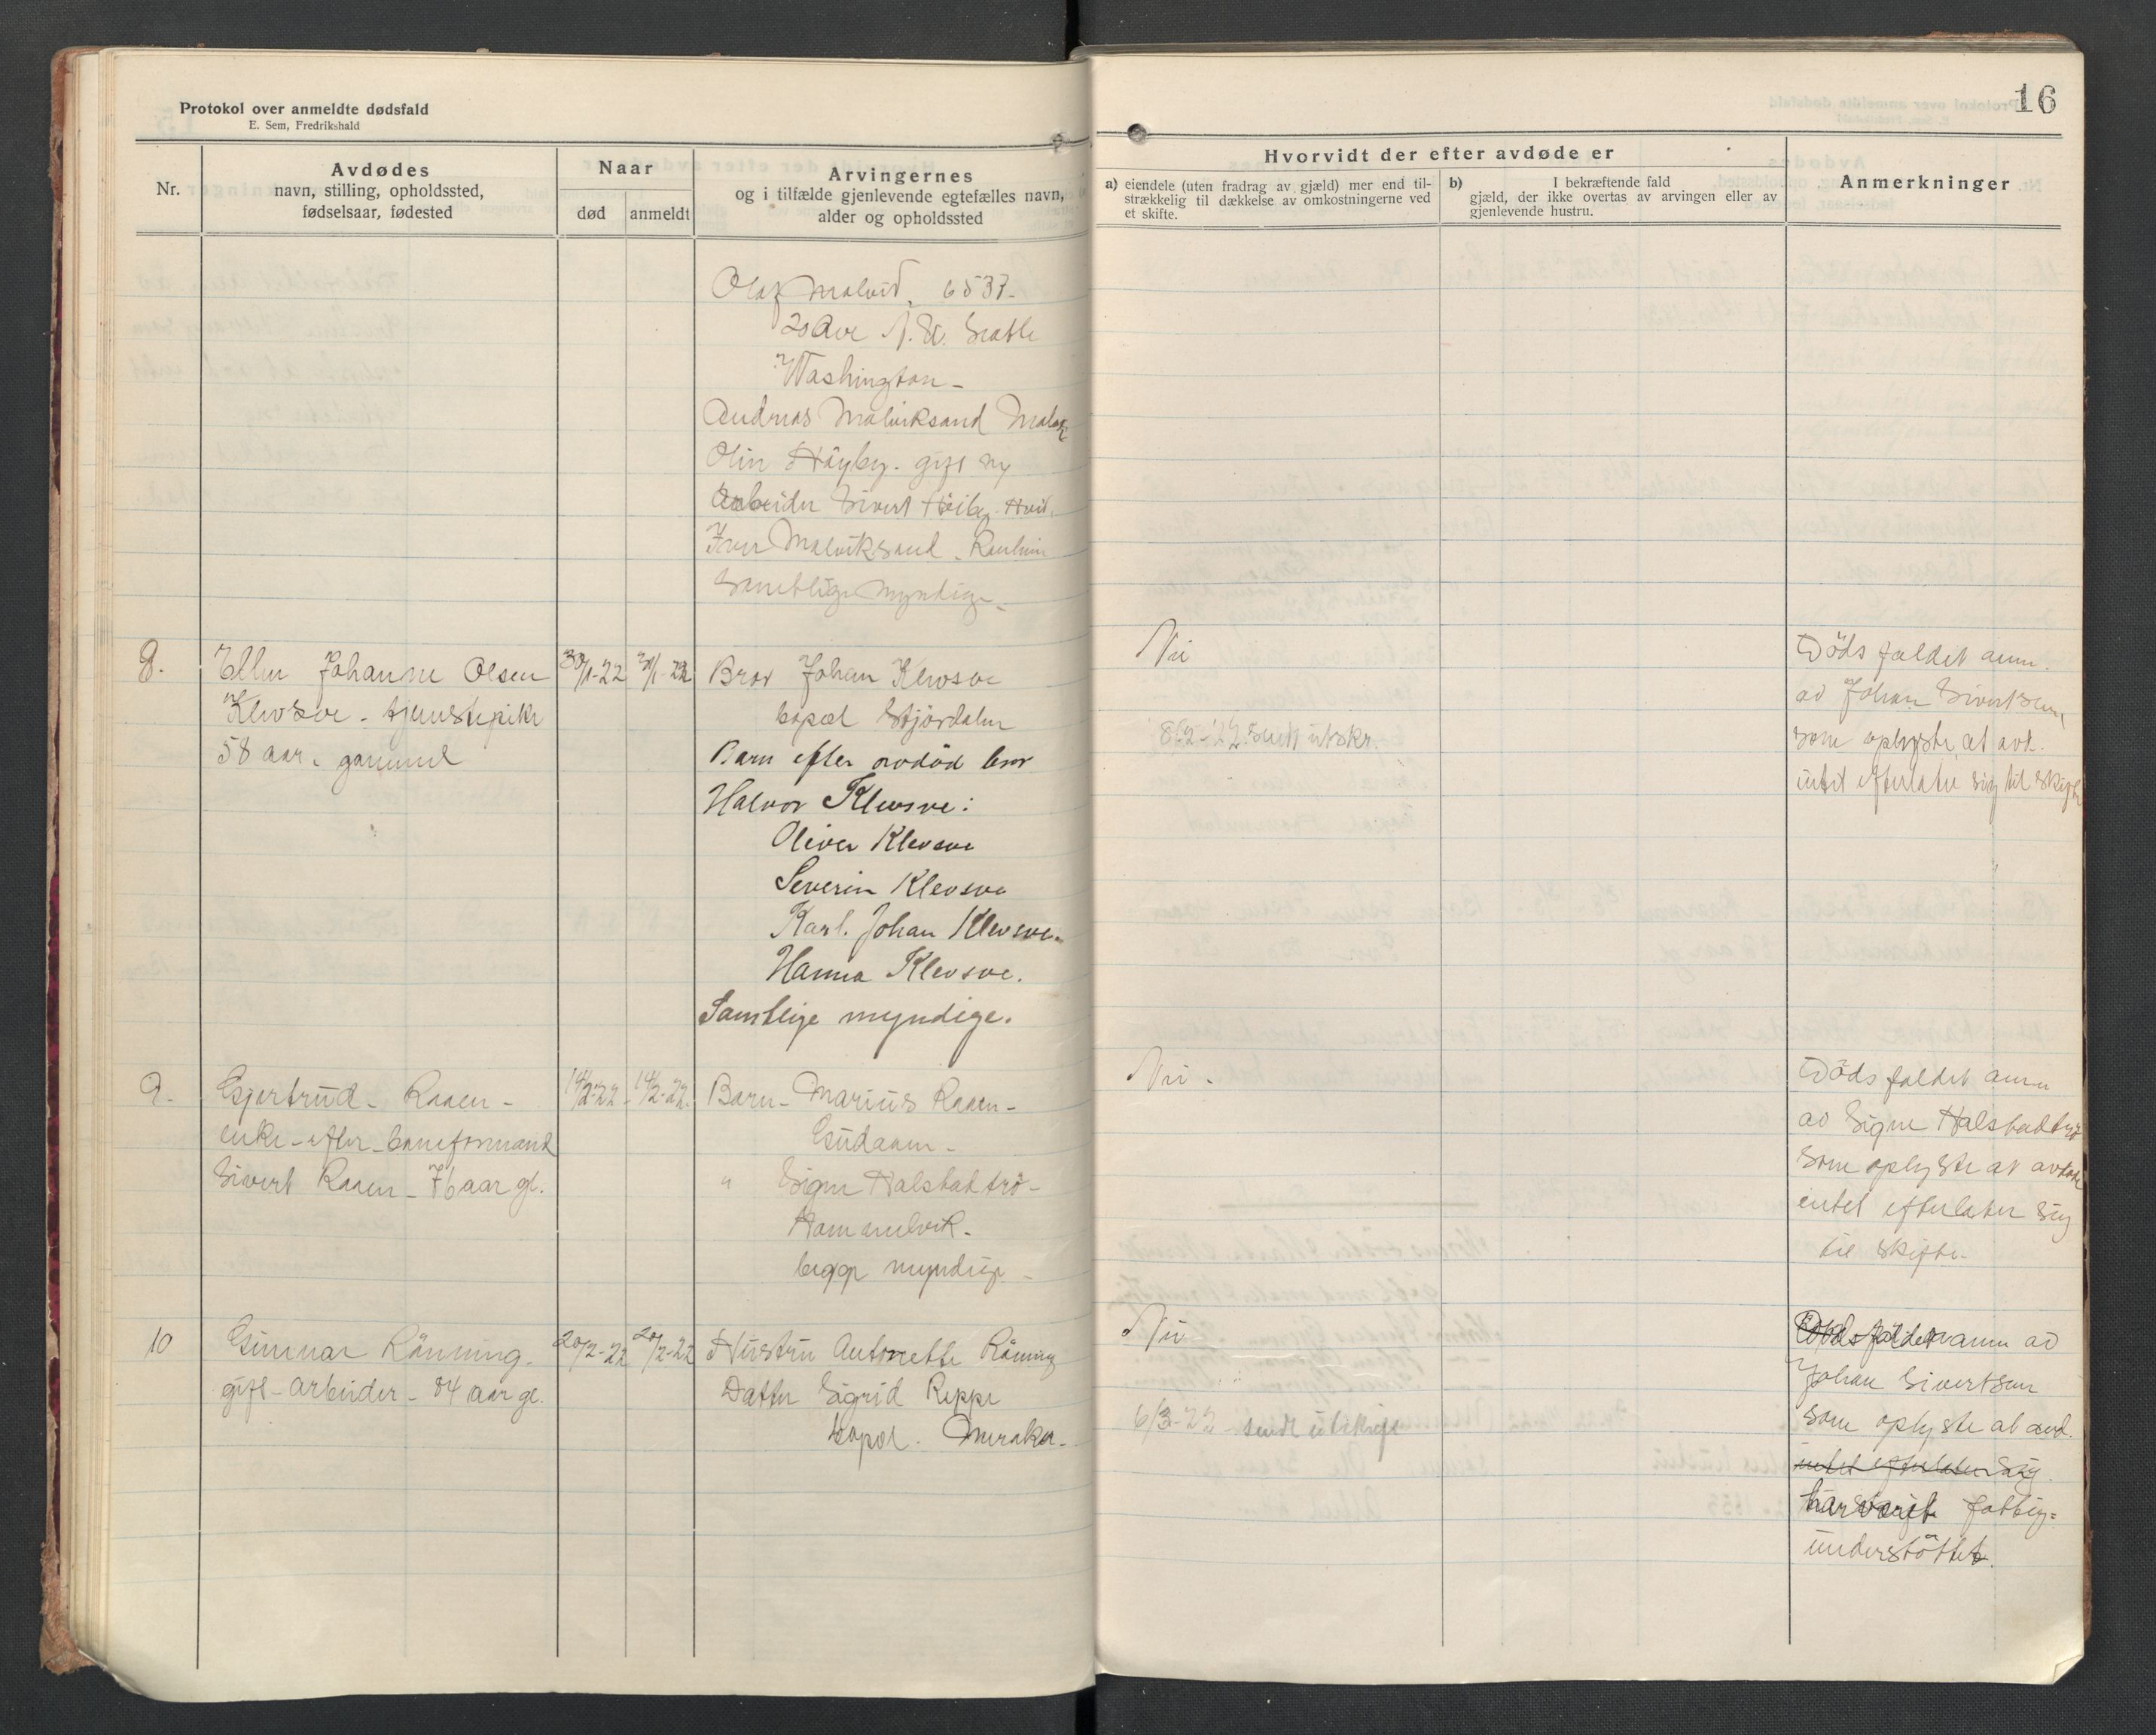 Protokol over anmeldte dødsfald
E. Sem, Fredrikshald
16
Nr.
Avdødes
navn, stilling, opholdssted,
fødselsaar, fødested
Naar
død
anmeldt
Arvingernes
og i tilfælde gjenlevende egtefælles navn,
alder og opholdssted
Hvorvidt der efter avdøde er
a) eiendele (uten fradrag av gjæld) mer end til-
strækkelig til dækkelse av omkostningerne ved
et skifte.
b) I bekræftende fald
gjæld, der ikke overtas av arvingen eller av
gjenlevende hustru.
Anmerkninger
Olaf Malvik, 6537-
20 Ave N. W. Seatle
Washington -
Andreas Malviksand
Olin Höyby. gift m
Arbeider Sivert Höiby
Iver Malviksand
Samtlige myndige -
8.
Ellen Johanne Olsen
Klevsve - tjenestepike
58 aar. gammel
30/1-22
Bror Johan Klevsve
bopæl Stjördalen
Barn efter avdöd bror
Halvor Klevsve:
Oliver Klevsve
Severin Klevsve
Karl. Johan Klevsve.
Hanna Klevsve.
Samtlige myndige.
Nei
8/2-22. sendt utskr.
Dödsfaldet anm.
av Johan Sivertsen,
som oplyste at avd.
intet efterlater sig til skifte
9.
Gjertrud - Raaen -
enke - efter - baneformand
Sivert Raaen - 76 aar gl.
14/2-22
14/2-22.
Barn - Marius Raaen -
Gudaaen -
" Signe Halstadtrö -
Hommelvik -
begge myndige -
Nei -
Dödsfaldet anm
av Signe Halstadtrö
som oplyste at avdöde
intet efterlater sig
til skifte -
10
Gunnar Rönning -
gift - arbeider - 84 aar gl.
20/2-22
20/2-22
Hustru Antonette Röning
Datter Sigrid Reppe
bopæl. Meraker -
Nei
6/3-22 - sendt utskrift
Dödsfaldet anm av
Johan Sivertsen
som oplyste at avd.
intet efterlater sig.
har været fattig=
understöttet.